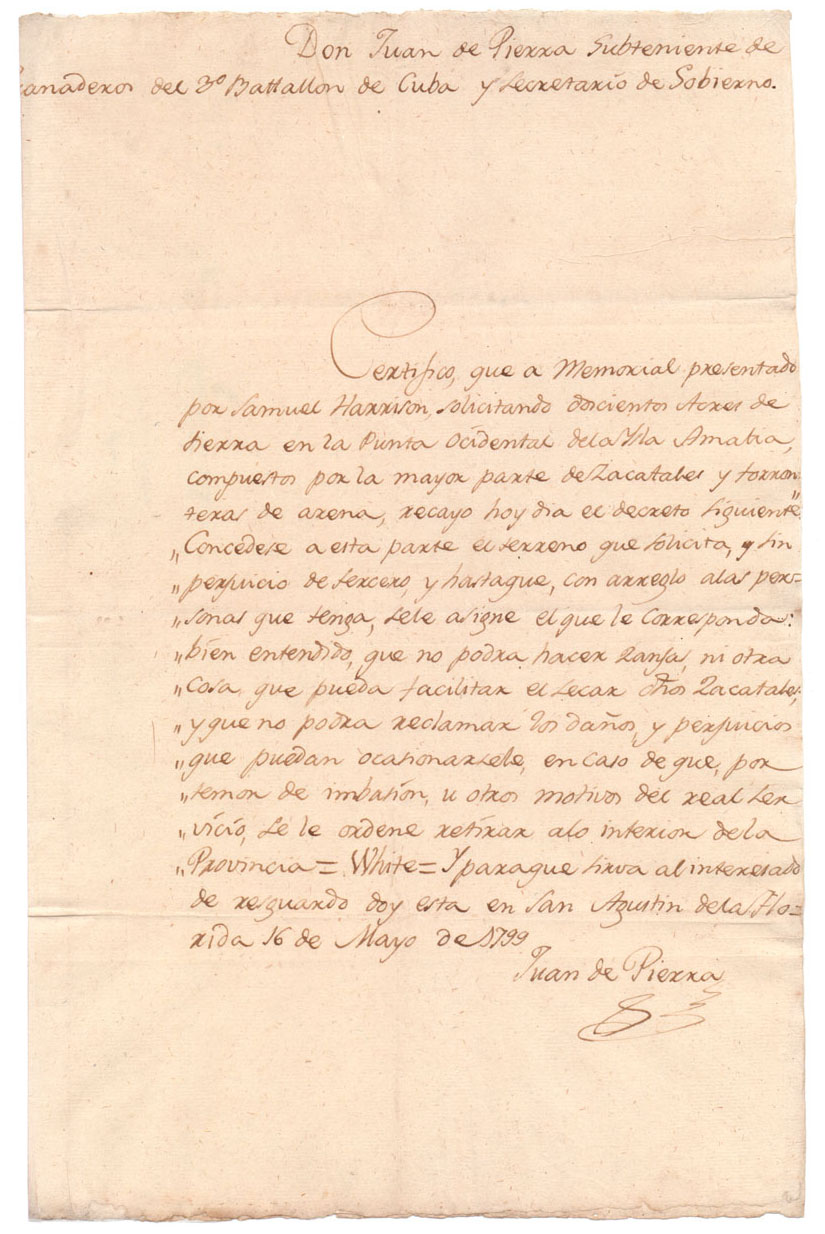 Don Juan de Pierra Subteniente de
anaderos del 3º Batallon de Cuba y Secretario de Gobierno.
Certifico, que a Memorial presentado
por Samuel Harrison, solicitando doscientos Acres de
tierra en la Punta Ocidental dela Ysla Amalia,
compuestos por la mayor parte de Zacatales y torron-
teras de arena, recayo hoy dia el decreto siguiente"
"Concedese a esta parte el terreno que solicita, y sin
"perjuicio de tercero, y hastaque, con arreglo alas per=
"sonas que tenga, sele asigne el que le Corresponda:
"bien entendido, que no podra hacer Zanja, ni otra
"Cosa que pueda facilitar el secar dhos Zacatales,
"y que no podra reclamar los daños, y perjuicios
"que puedan ocasionarsele, en caso de que, por
"temor de imbasion, u otros motivos del real Ser
"vicio, se le ordene retirar alo interior dela
"Provincia = White = Y paraque sirva al interesado
de resguardo doy esta en San Agustin dela Flo=
rida 16 de Mayo de 1799
Juan de Pierra